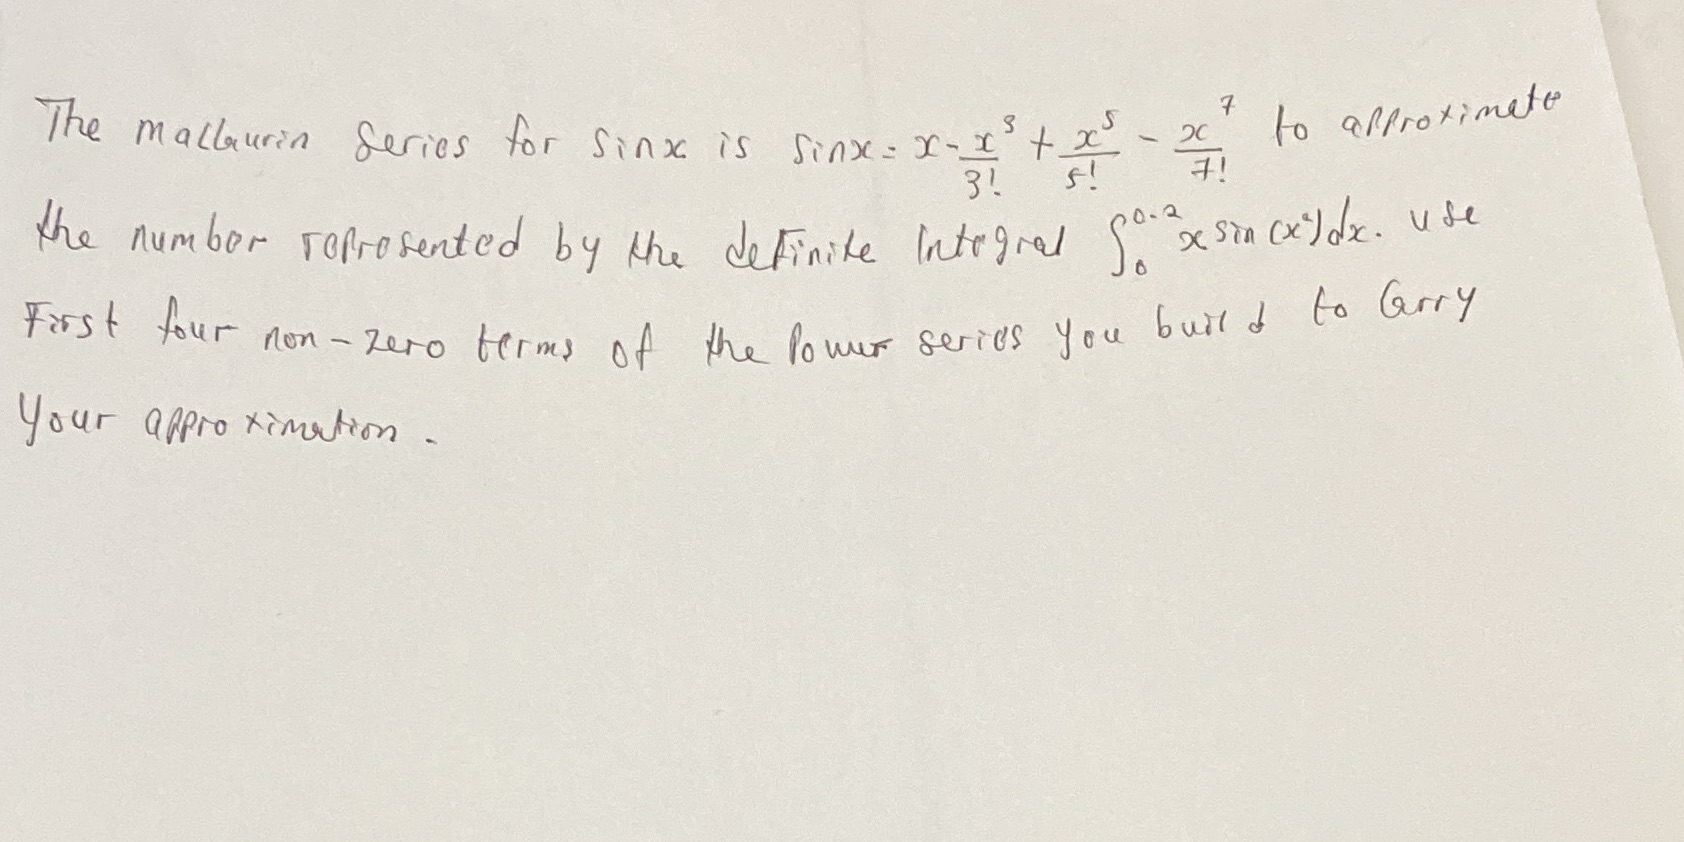 The maclaurin series for sinx is sinx = x - x³/3! + x⁵/5! - x⁷/7! to approximate
the number represented by the definite Integral ∫₀^0.2 x sin (x²) dx. use
First four non-zero terms of the Power series you build to Carry
Your approximation.